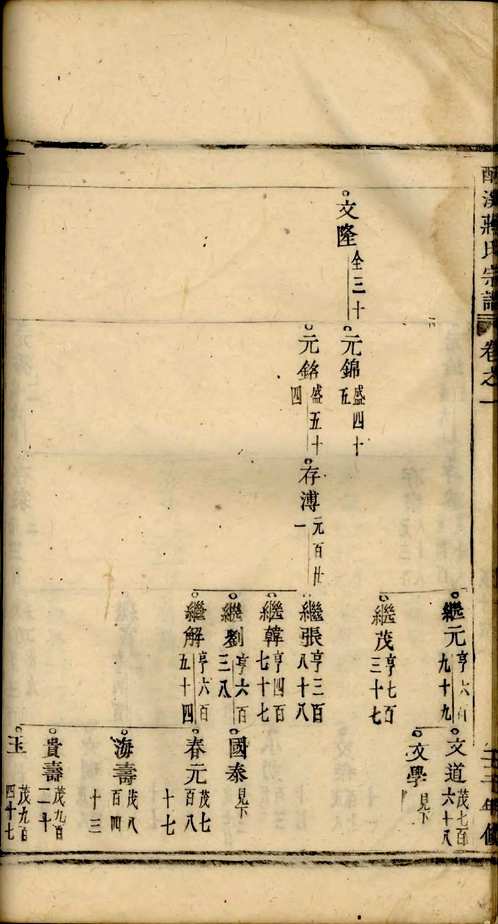 蔣氏宗譜 卷之一
文隆 全三十
元錦 盛四十五
元銘 盛五十四
存溥 元百廿一
繼元 亨六百九十九
繼茂 亨七百三十七
繼張 亨三百八十八
繼韓 亨四百七十七
繼劉 亨六百三八
繼解 亨六百五十四
文道 茂七百六十八
文學 見下
國泰 見下
春元 茂七百八十七
海壽 茂八百四十三
貴壽 茂九百二十
玉 茂九百四十七